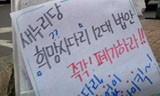 새누리당
희망사다리 12대 법안
즉각! 폐기하라!!